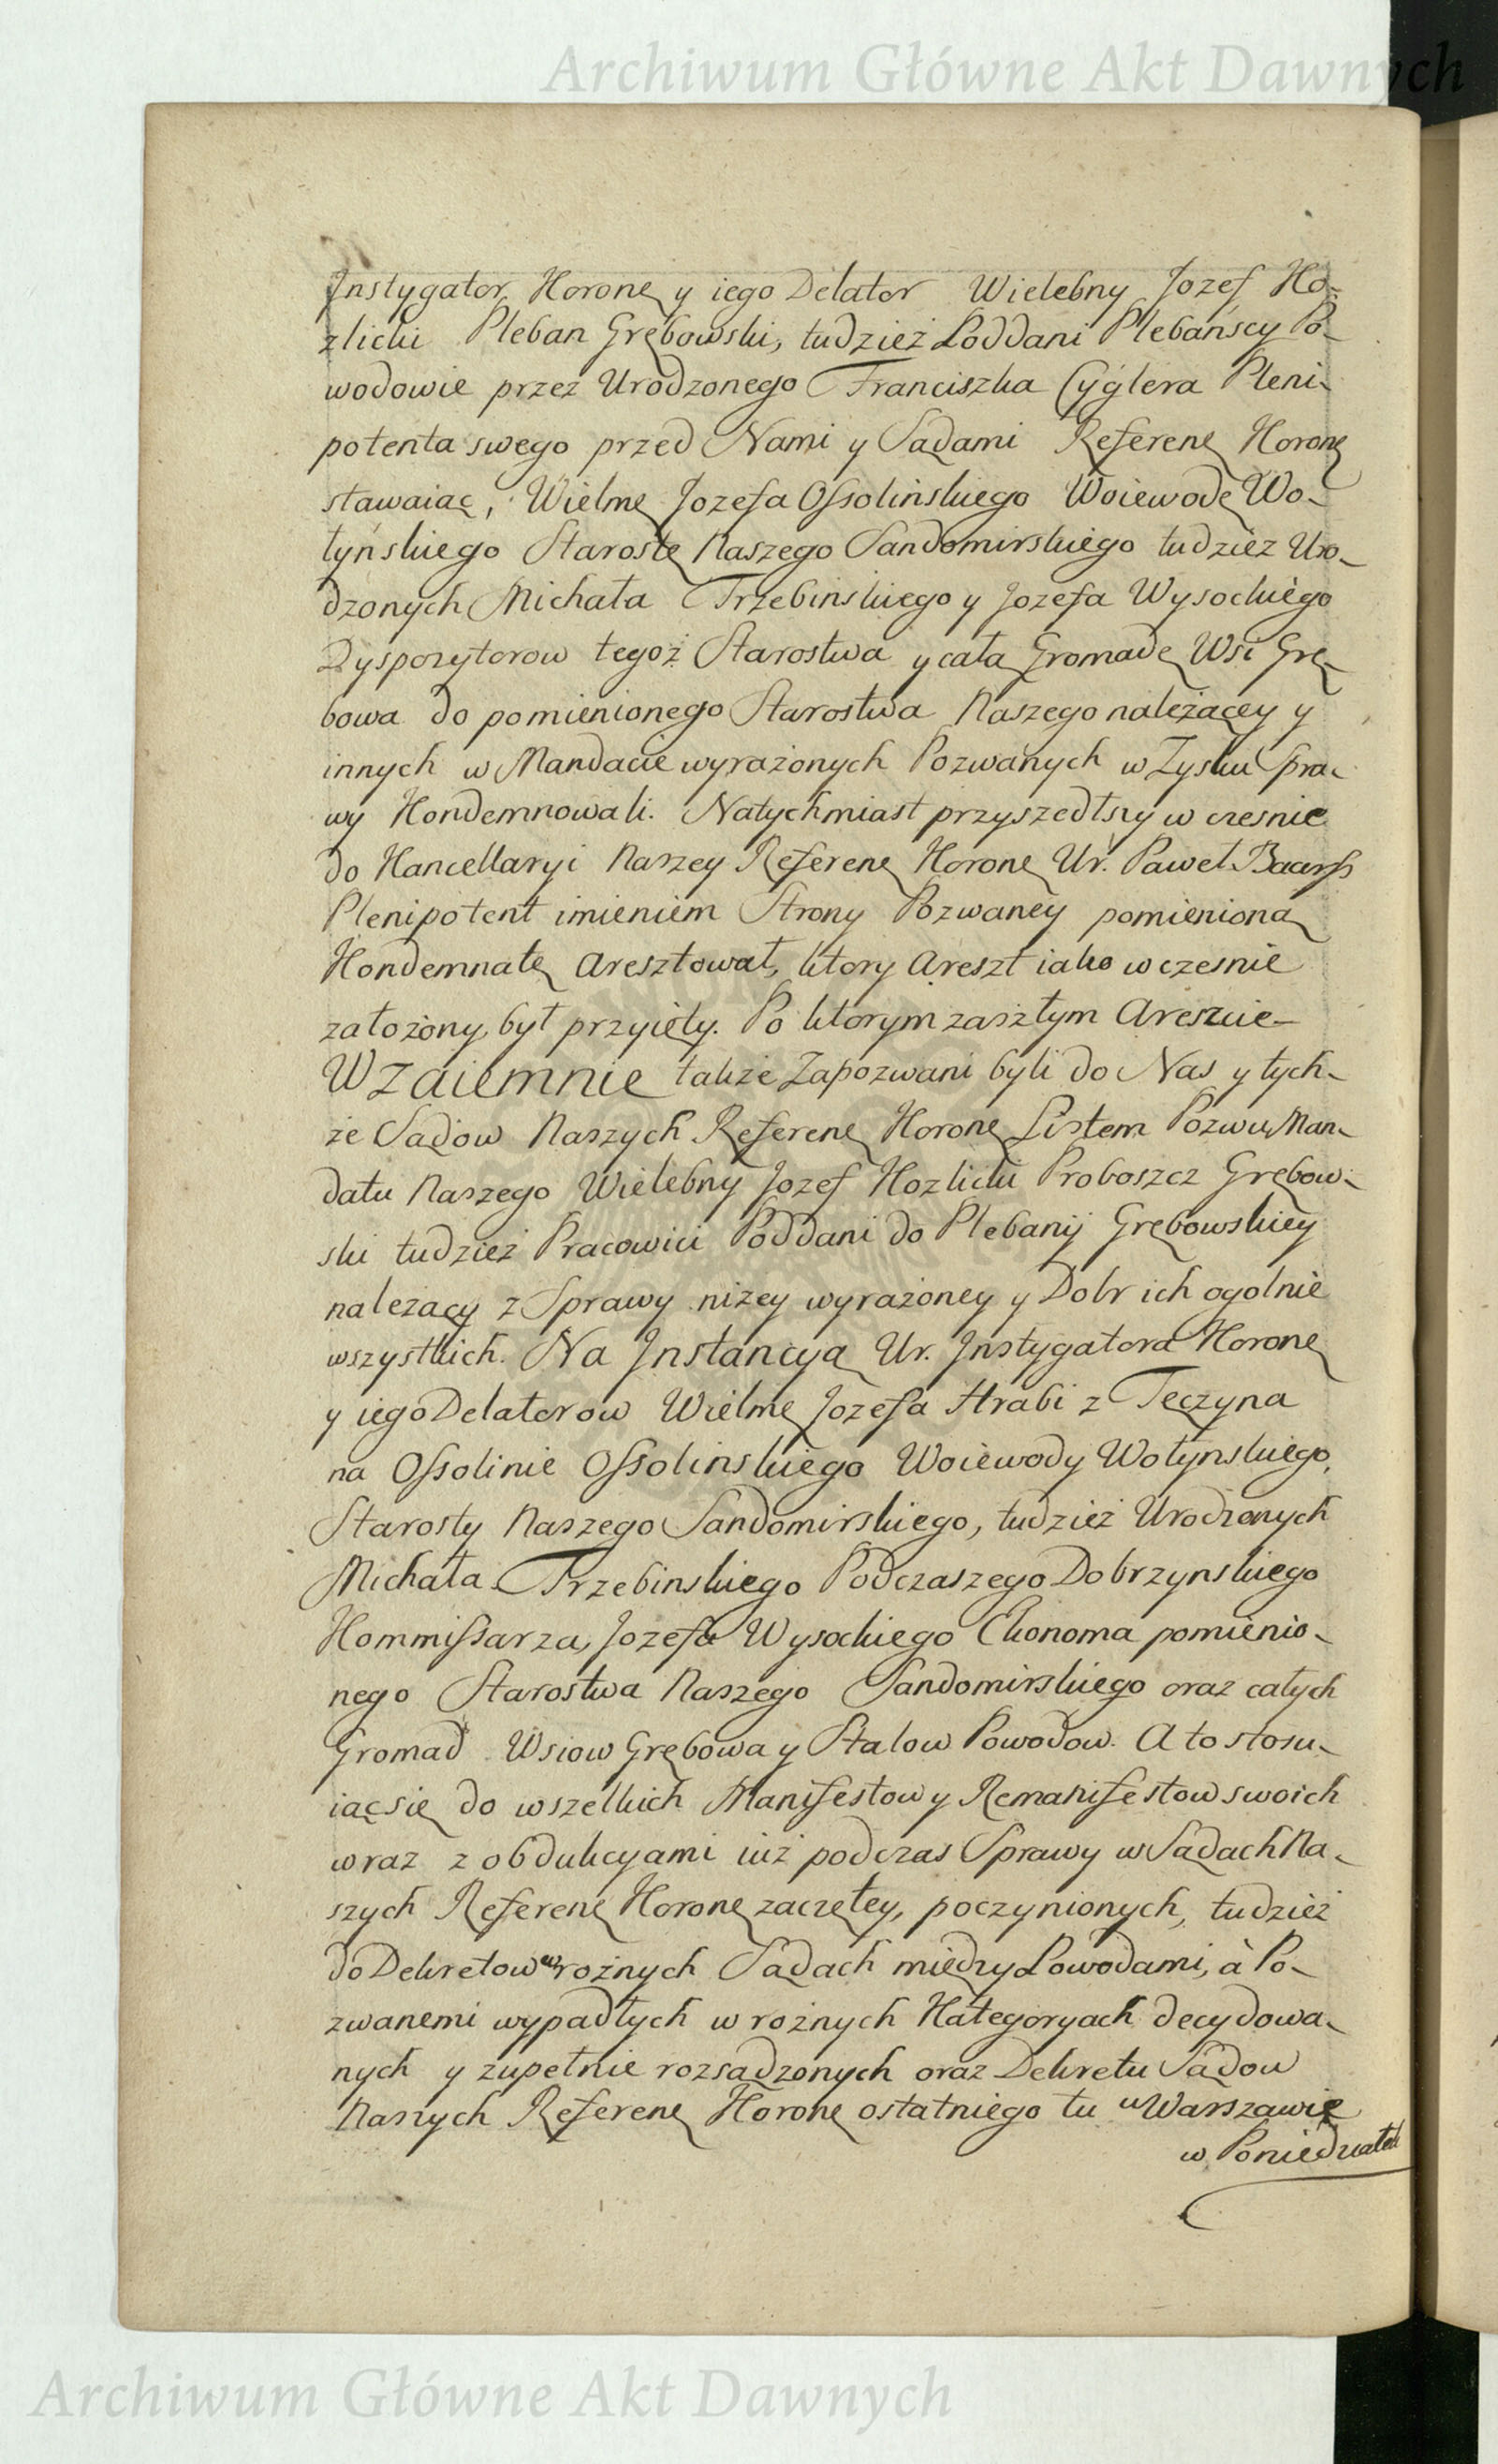 Archiwum Główne Akt Dawnych
Instygator Koronę y iego Delator Wielebny Jozef Ko-
zlicki Pleban Grębowski, tudzież Poddani Plebańscy Po-
wodowie przez Urodzonego Franciszka Cyglera Pleni-
potenta swego przed Nami y Sądami Referenę Koronę
stawaiąc, Wielmę Jozefa Ossolińskiego Woiewodę Wo-
łyńskiego Starostę Naszego Sandomirskiego tudzież Uro-
dzonych Michała Trzebinskiego y Jozefa Wysockiego
Dyspozytorow tegoż Starostwa y całą Gromadę Wsi Grę-
bowa do pomienionego Starostwa Naszego należącey y
innych w Mandacie wyrażonych Pozwanych w Zysku Spra-
wy Kondemnowali. Natychmiast przyszedłszy w czesnie
do Kancellaryi Naszey Referenę Koronę Ur. Paweł
Plenipotent imieniem Strony Pozwaney pomienioną
Kondemnatę aresztował, ktory Areszt iako w czesnie
założony, był przyięty. Po ktorym zaszłym Areszcie
Wzaiemnie także Zapozwani byli do Nas y tych-
że Sądow Naszych Referenę Koronę Listem Pozwu Man-
datu Naszego Wielebny Jozef Kozlicki Proboszcz Grębow-
ski tudzież Pracowici Poddani do Plebanij Grębowskiey
należący z Sprawy niżey wyrażoney y Dobr ich ogolnie
wszystkich. Na Instancyą Ur. Instygatora Koronę
y iego Delatorow Wielmę Jozefa Hrabi z Tęczyna
na Ossolinie Ossolinskiego Woiewody Wołynskiego,
Starosty Naszego Sandomirskiego, tudzież Urodzonych
Michała Trzebinskiego Podczaszego Dobrzynskiego
Kommissarza, Jozefa Wysockiego Ekonoma pomienio-
nego Starostwa Naszego Sandomirskiego oraz całych
Gromad Wsiow Grębowa y Stalow Powodow. A to stosu-
iąc się do wszelkich Manifestow y Remanifestow swoich
wraz z obdukcyami iuż podczas Sprawy w Sądach Na-
szych Referenę Koronę zaczętey, poczynionych, tudzież
do Dekretow w rożnych Sądach między Powodami, à Po-
zwanemi wypadłych w rożnych Kategoryach decydowa-
nych y zupełnie rozsądzonych oraz Dekretu Sądow
Naszych Referenę Koronę ostatniego tu w Warszawie
w Poniedziałek
Archiwum Główne Akt Dawnych